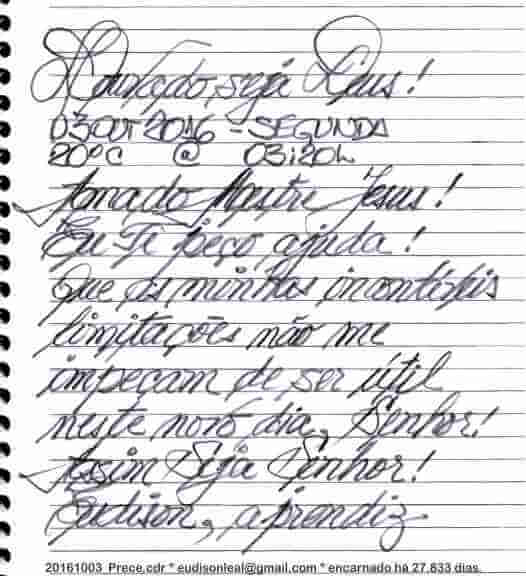 Louvado seja Deus!
03 OUT 2016 - SEGUNDA
20ºC @ 03:20h
Amado Mestre Jesus!
Eu Te peço ajuda!
Que as minhas incontáveis
limitações não me
impeçam de ser útil
neste novo dia, Senhor!
Assim Seja Senhor!
Eudison, aprendiz
20161003_Prece.cdr * eudisonleal@gmail.com * encarnado há 27.833 dias.